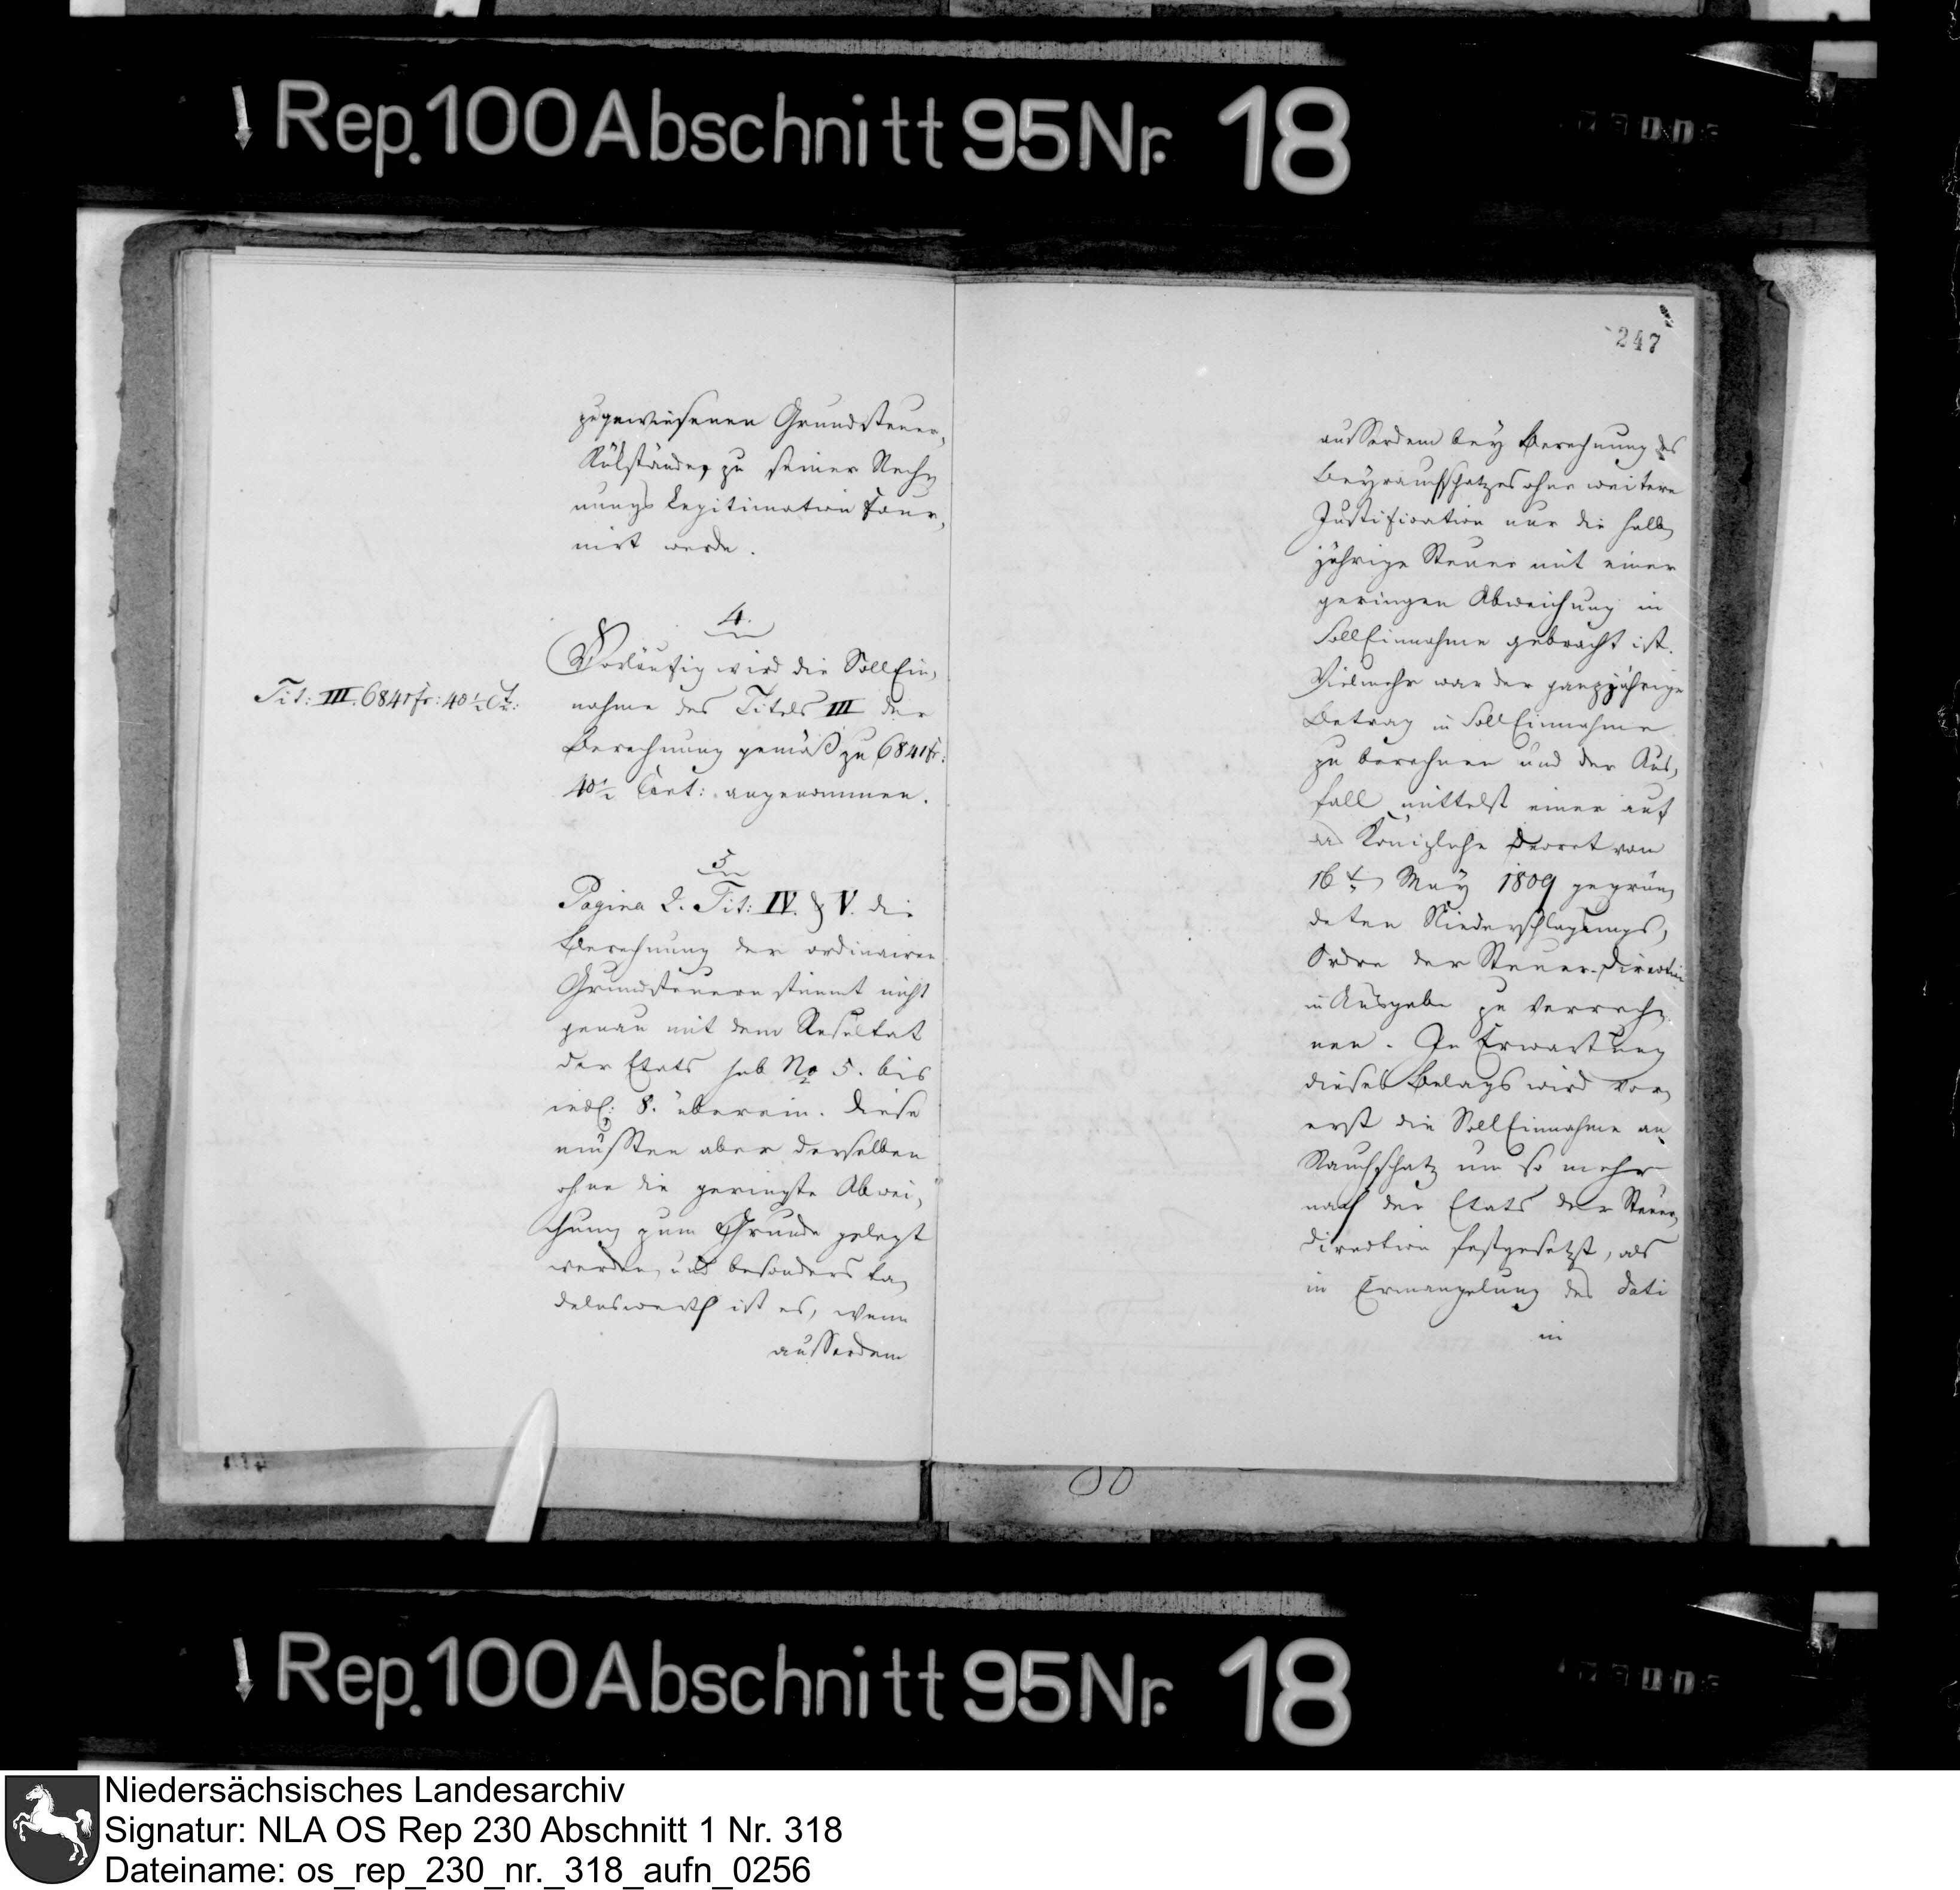 Rep. 100 Abschnitt 95 Nr. 18
zugewiesenen Grundsteuer,
Rükstände, zu seiner Rech,
nungs Legitimation four,
nirt werde.
4.
Vorläufig wird die SollEin,
Tit: III. 6841 fr: 40 1/2 Ct:
nahme des Titels III der
Berechnung gemäß zu 6841 fr:
40 1/2 Cent: angenommen.
5.
Pagina 2. Tit: IV. & V. die
Berechnung der ordinairen
Grundsteuern stimmt nicht
genau mit dem Resultat
der Etats sub No 5. bis
incl: 8. überein. Diese
müssten aber derselben
ohne die geringste Abwei,
chung zum Grunde gelegt
werden, und besonders ta,
delnswerth ist es, wenn
ausserdem
247
ausserdem bey Berechnung des
Beyrauchschatzes ohne weitere
Justification nur die halb,
jährige Steuer mit einer
geringen Abweichung in
SollEinnahme gebracht ist.
Vielmehr war der ganzjährige
Betrag in SollEinnahme
zu berechnen und der Aus,
fall mittelst einer auf
das Königliche Decret vom
16t May 1809 gegrün,
deten Niederschlagungs,
Ordre der Steuer-Direction
in Ausgabe zu verrech,
nen. In Erwartung
dieses Belags wird vor,
erst die SollEinnahme an
Rauchschatz um so mehr
nach den Etats der Steuer,
direction festgesetzt, als
in Ermangelung des dati
in
Rep. 100 Abschnitt 95 Nr. 18
Niedersächsisches Landesarchiv
Signatur: NLA OS Rep 230 Abschnitt 1 Nr. 318
Dateiname: os_rep_230_nr._318_aufn_0256